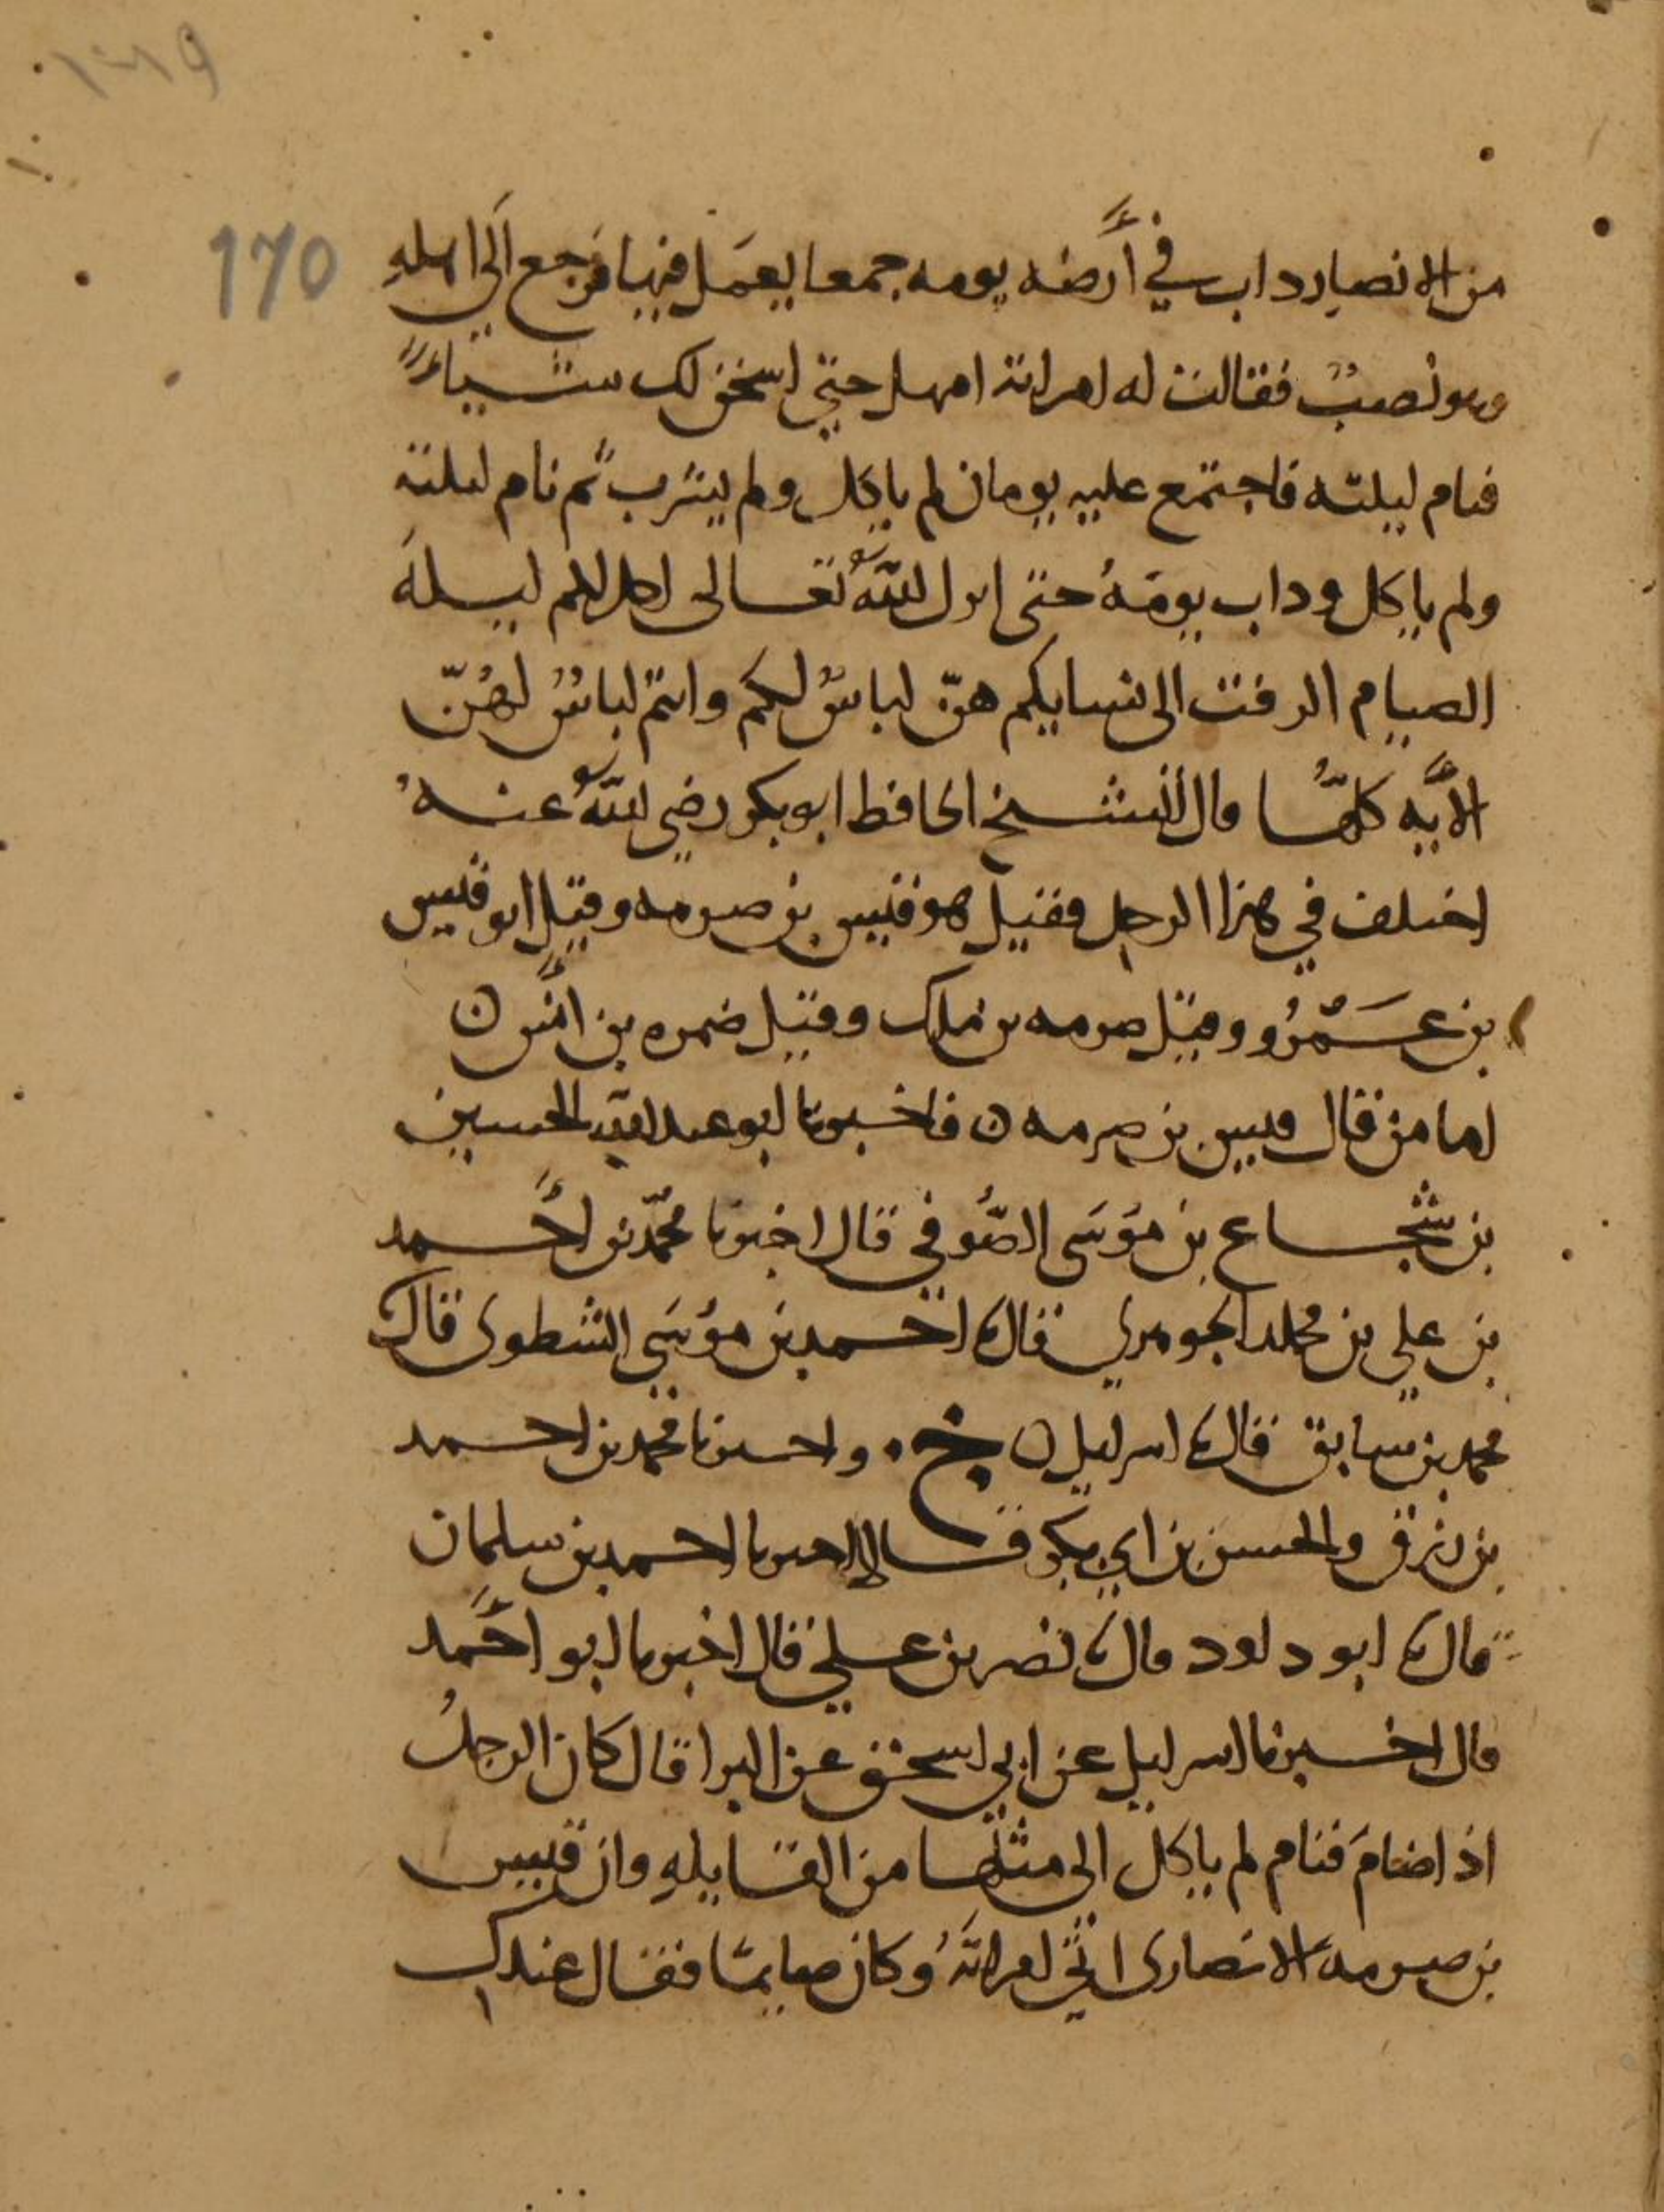 170
من الانصار داب في أرضه يومه جمعا يعمل فيها فرجع الى اهله
وهو نصب فقالت له امراته امهل حتى اسخن لك شيئا
فنام ليلته فاجتمع عليه يومان لم ياكل ولم يشرب ثم نام ليلته
ولم ياكل وداب يومه حتى انزل الله تعالى احل لكم ليلة
الصيام الرفث الى نسايكم هنّ لباسٌ لكم وانتم لباسٌ لهُنّ
الآيه كلها قال الشيخ الحافظ ابو بكر رضي الله عنه
اختلف في هذا الرجل فقيل هو قيس بن صرمه وقيل ابو قيس
بن عَمْرُو وقيل صرمه بن ملك وقيل ضمره بن أنس ن
اما من قال قيس بن صرمه ن فاخبرنا ابو عبد الله الحسين
بن شجاع بن موسى الصوفي قال اخبرنا محمد بن أحمد
بن علي بن مخلد الجوهري قال نا احمد بن موسى الشطوى قال
محمد بن سابق قال نا اسرايل ن خ . واخبرنا محمد بن احمد
بن رزق والحسن بن ابي بكر قالا اخبرنا احمد بن سلمان
قال نا ابو داود قال نا نصر بن علي قال اخبرنا ابو أحمد
قال اخبرنا اسرايل عن ابي اسحق عن البرا قال كان الرجل
اذا صام فنام لم ياكل الى مثلها من القابله وان قيس
بن صرمه الانصارى اتى امراته وكان صايما فقال عندك